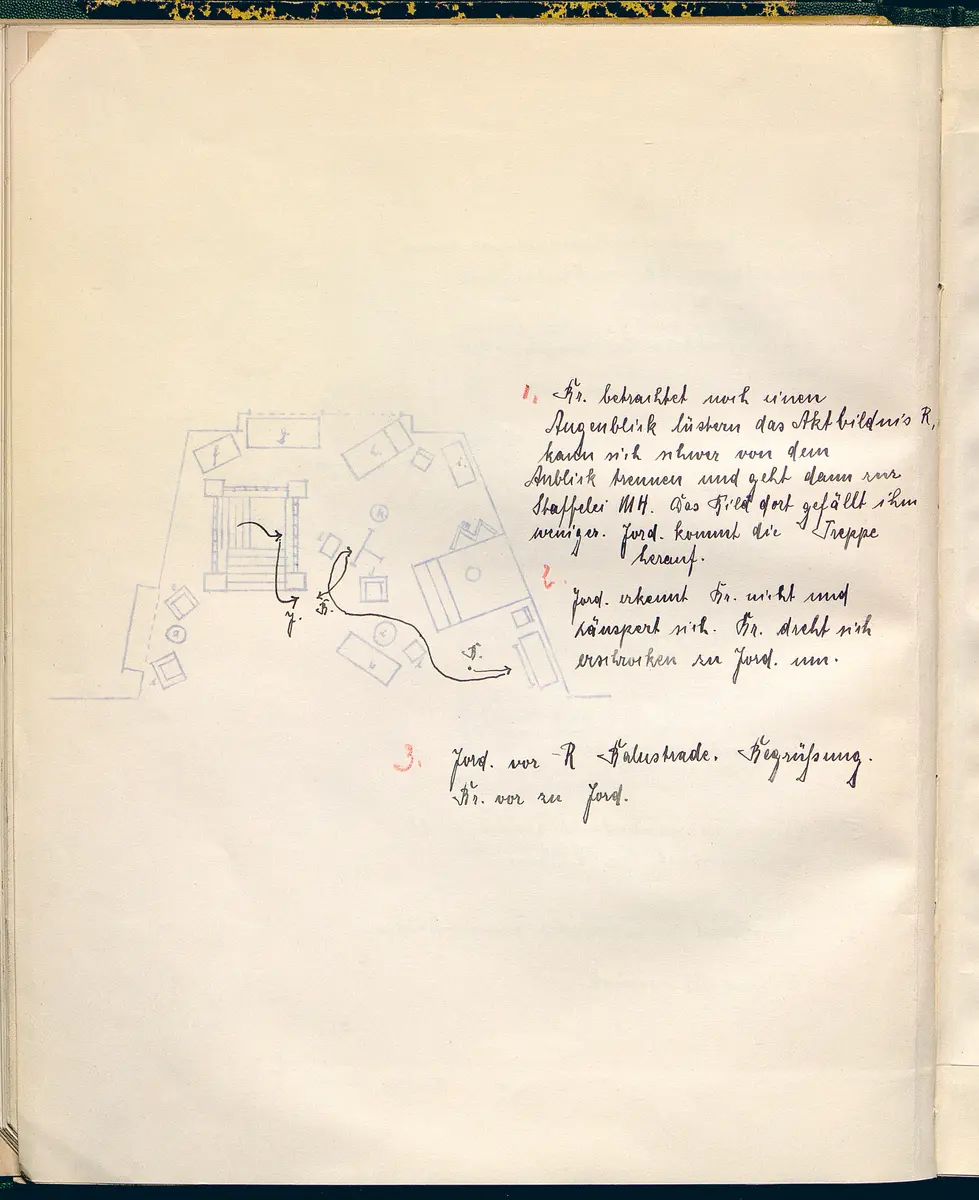 1. Kr. betrachtet noch einen
Augenblick lüstern das Aktbildnis R,
kann sich schwer von dem
Anblick trennen und geht dann zur
Staffelei MH. Das Bild dort gefällt ihm
weniger. Jord. kommt die Treppe
herauf.
2. Jord. erkennt Kr. nicht und
räuspert sich. Kr. dreht sich
erschrocken zu Jord. um.
f
g
k
a
J.
Kr.
K.
3. Jord. vor R Balustrade. Begrüßung.
Kr. vor zu Jord.